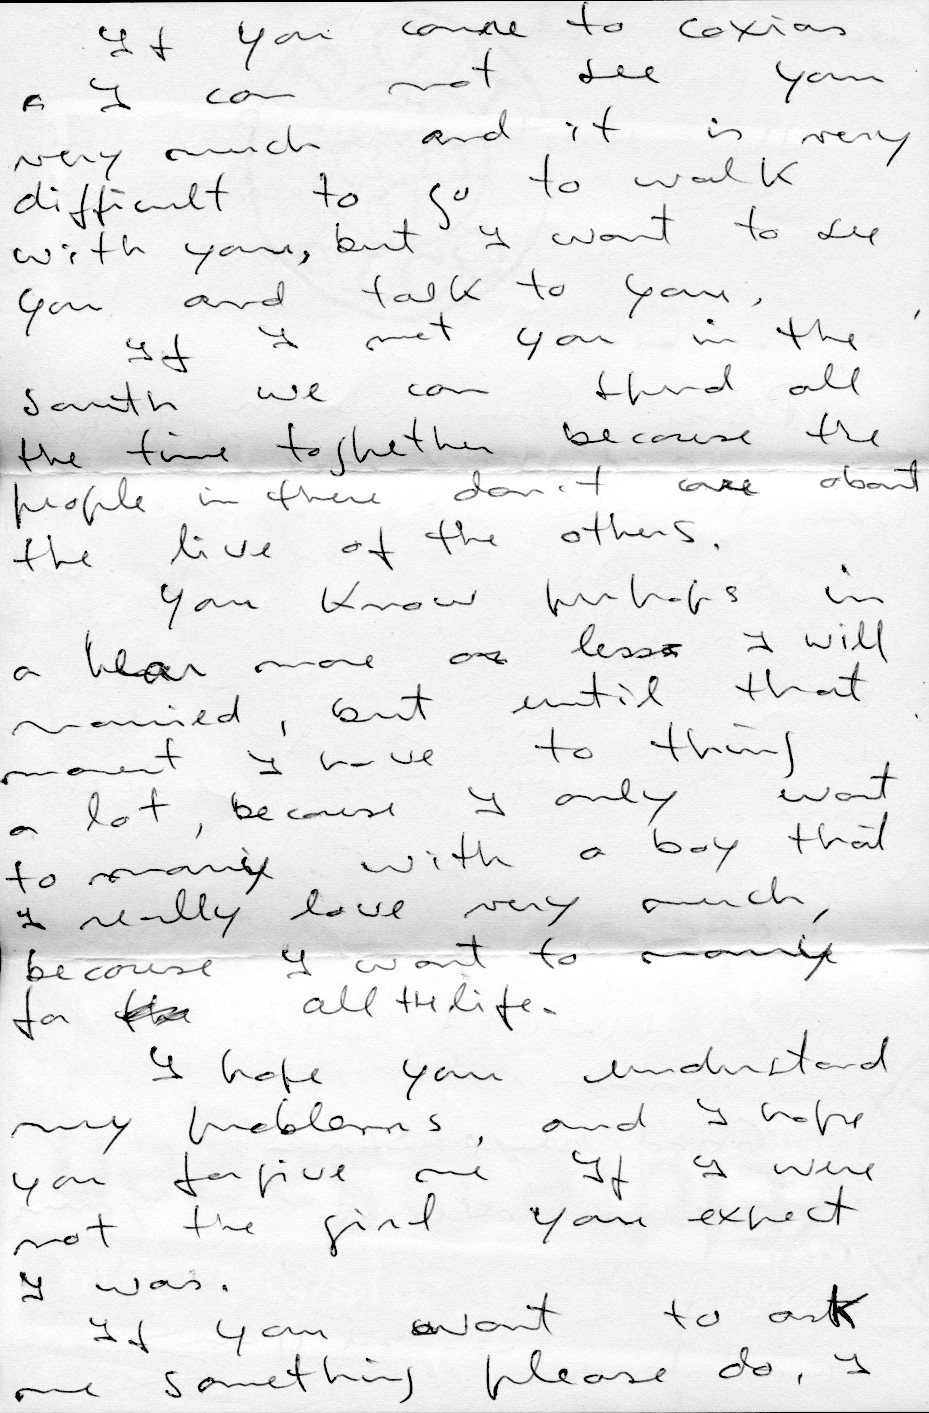 If you come to coxias
a I can not see you
very much and it is very
difficult to go to walk
with you, but I want to see
you and talk to you.
If I met you in the
south we can spend all
the time toghether because the
people in there don't care about
the live of the others.
You know perhaps in
a more or less I will
married, but until that
moment I have to thing
a lot, because I only want
to marry with a boy that
I really love very much,
because I want to marry
for all the life.
I hope you understand
my problems, and I hope
you forgive me If I were
not the girl you expect
I was.
If you want to ask
me something please do, I